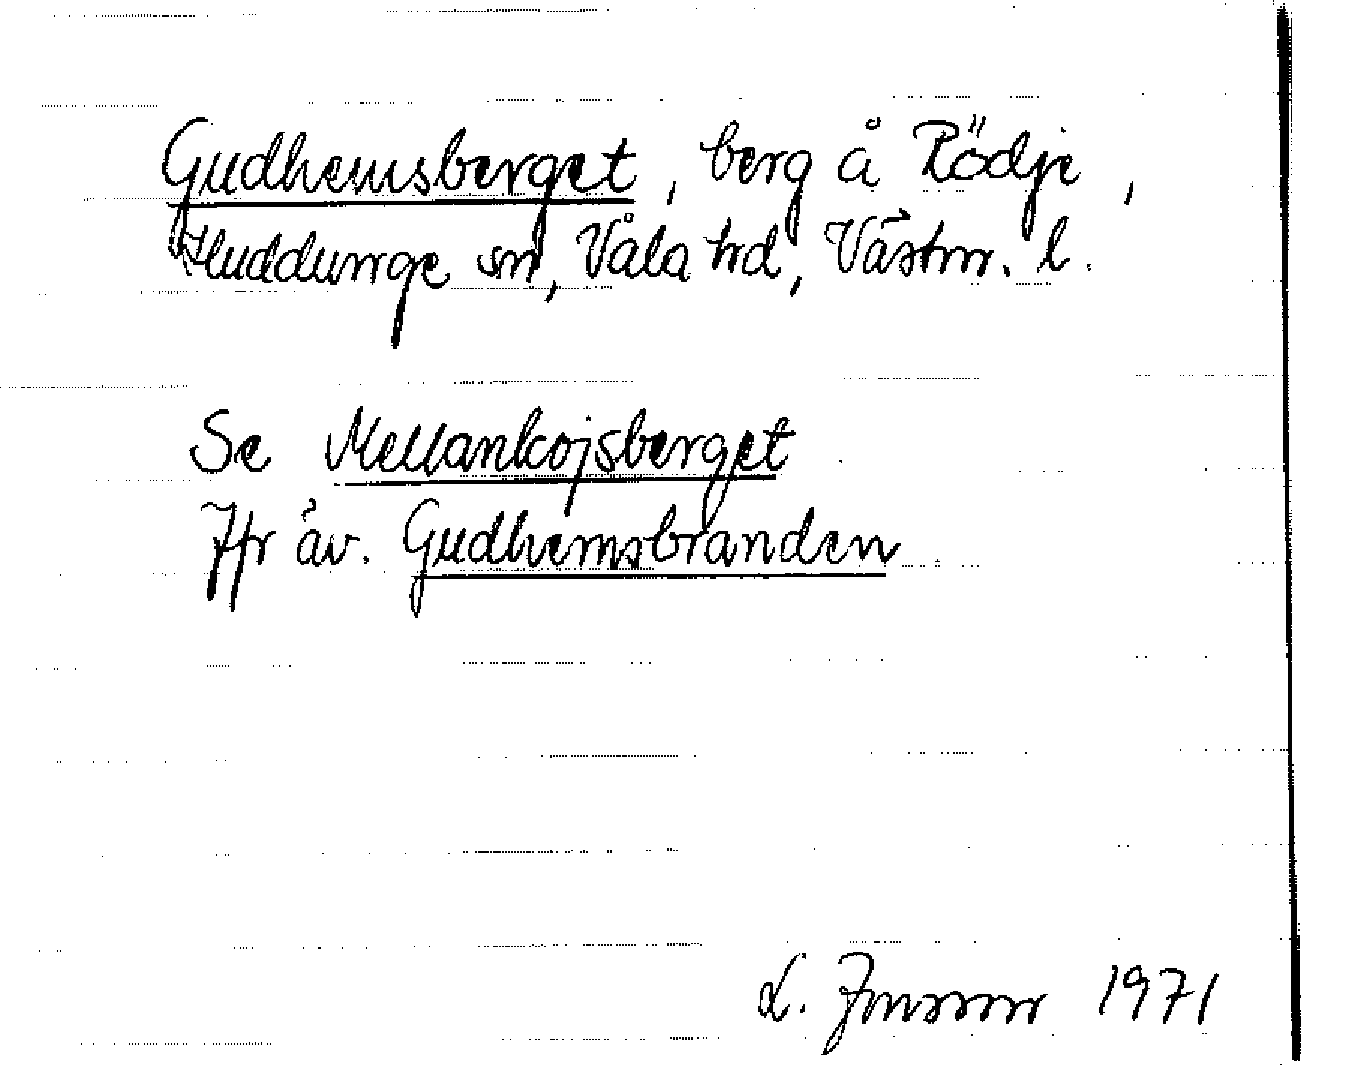 Gudhemsberget, berg å Rödje,
Huddunge sn, Våla hd, Västm. l.
Se Mellankojsberget
Jfr äv. Gudhemsbranden
L. 1971